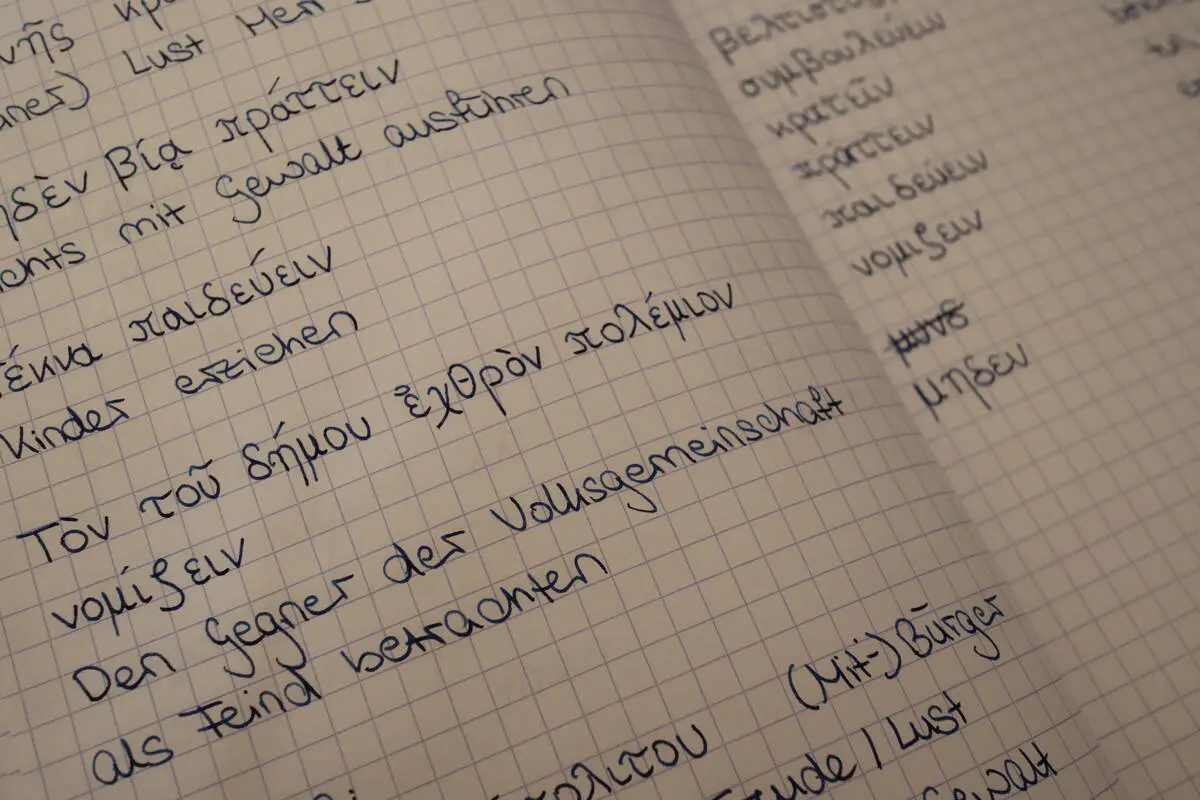 Lust Herr
μηδὲν βίᾳ πράττειν
mit Gewalt ausführen
παιδεύειν
Kinder erziehen
Τὸν τοῦ δήμου ἐχθρὸν πολέμιον
νομίζειν
Den Gegner der Volksgemeinschaft
als Feind betrachten
(Mit-)Bürger
/ Lust
Gewalt
συμβουλεύειν
κρατεῖν
πράττειν
παιδεύειν
νομιζειν
μηδεν